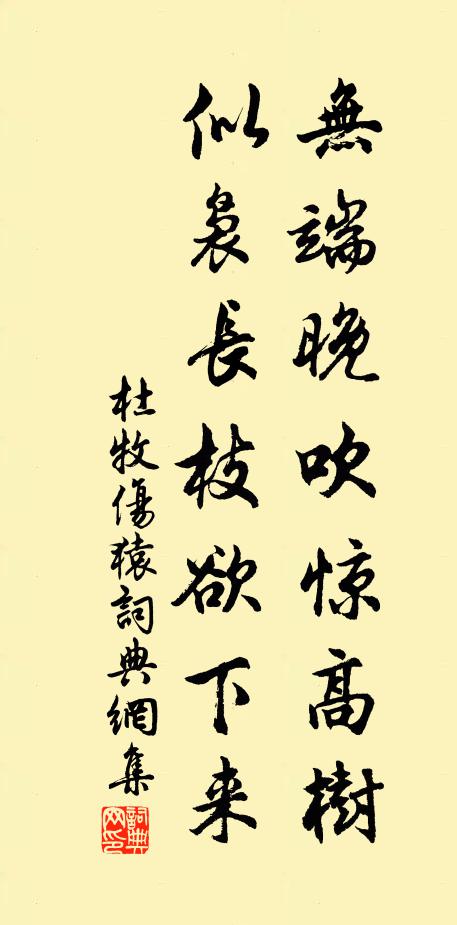 無端晚吹惊高樹
似裊長枝欲下来
杜牧傷猿詞典網集
詞典
网印